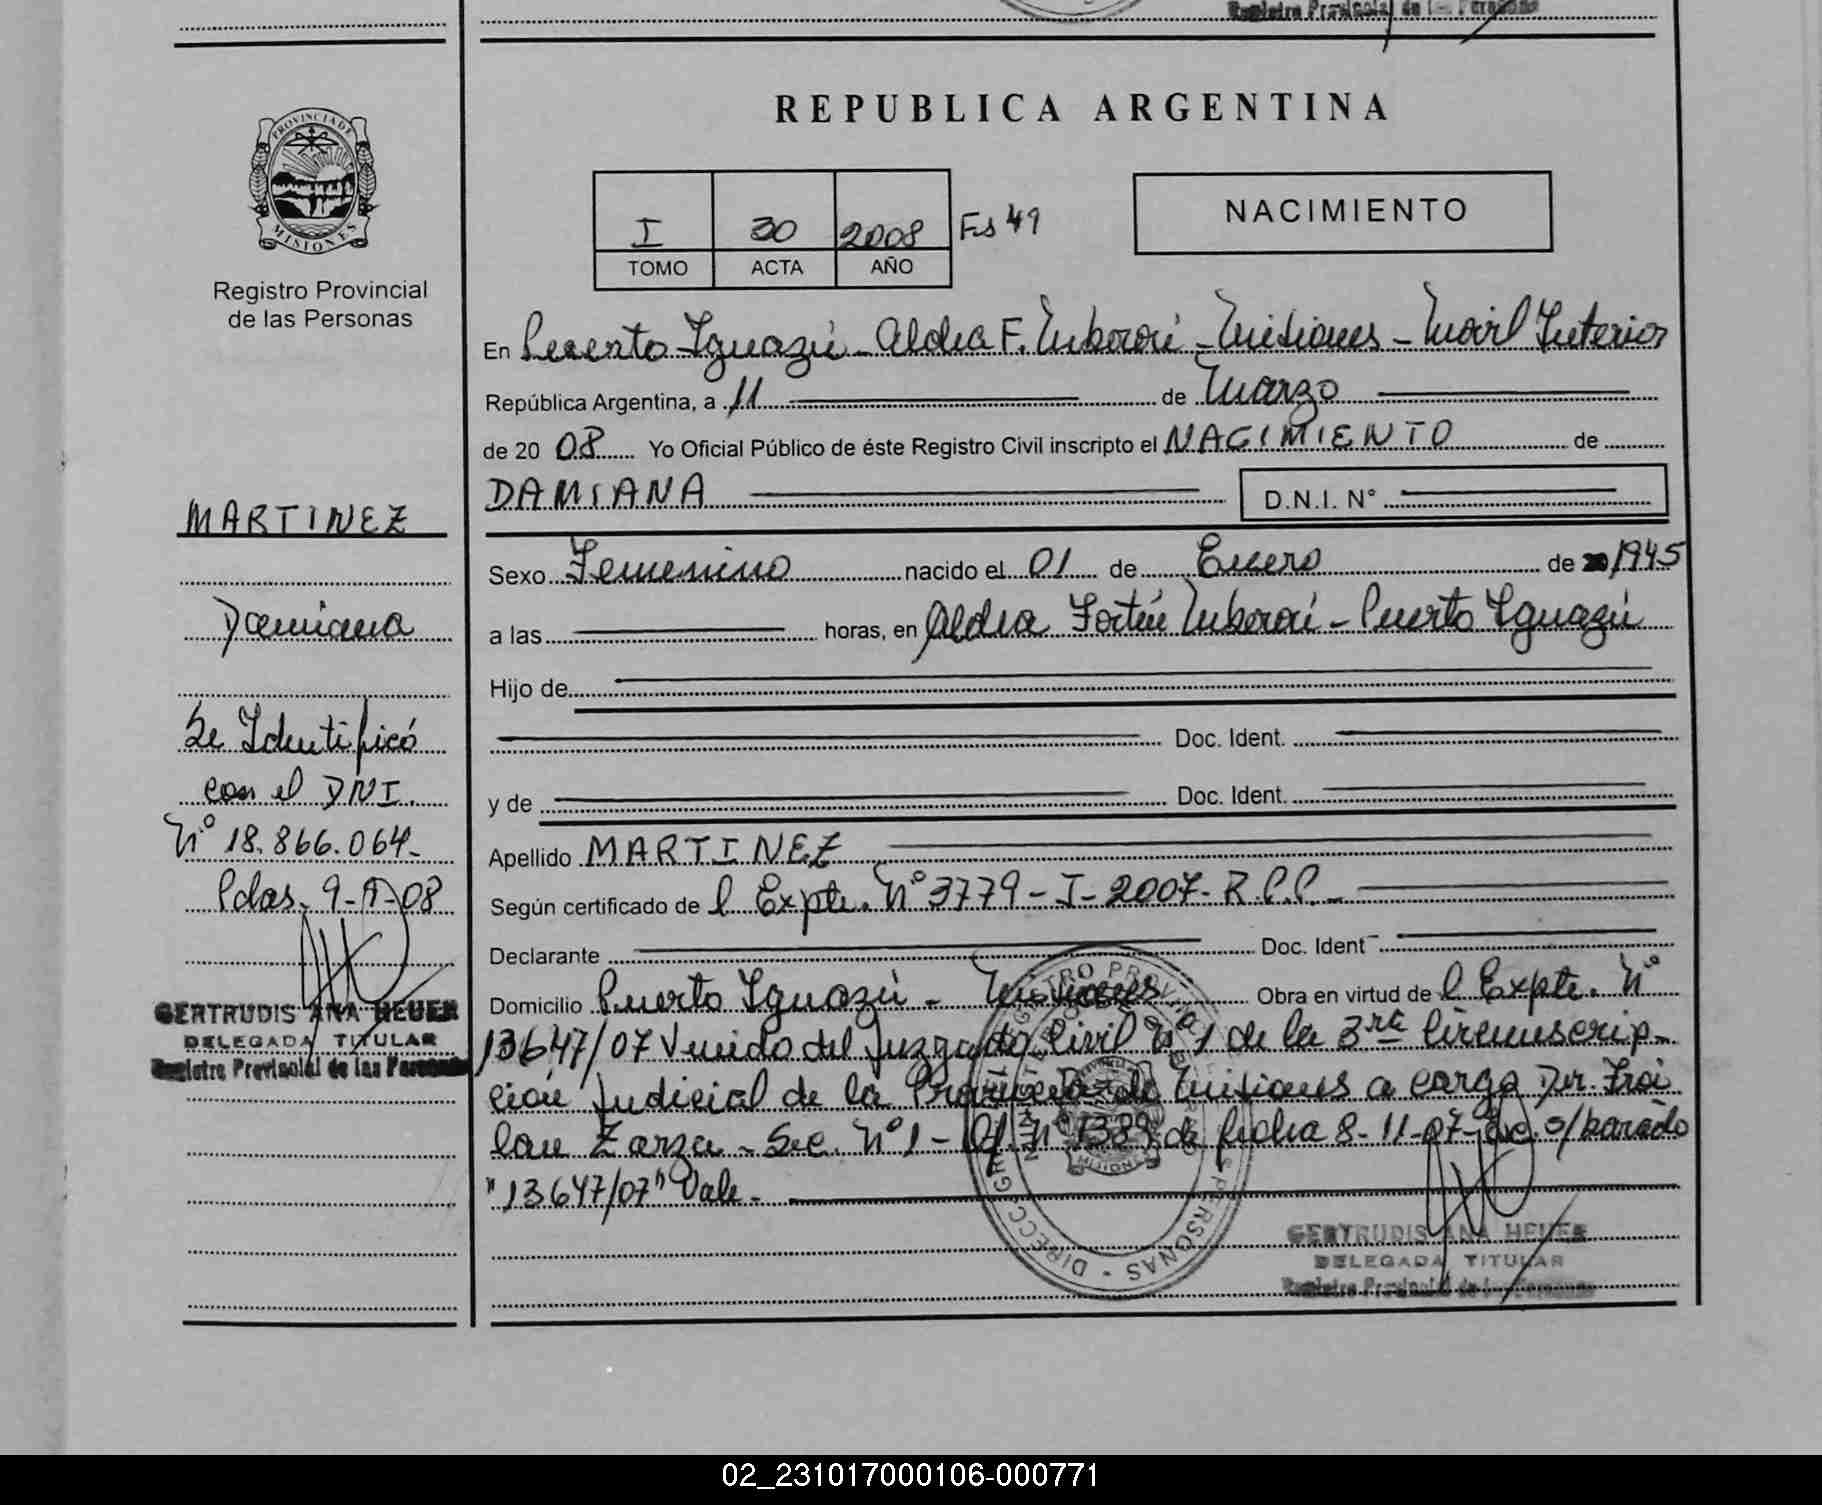 Registro Provincial de las Personas
REPUBLICA ARGENTINA
PROVINCIA DE
MISIONES
Registro Provincial
de las Personas
I 30 2008 Fs 49
TOMO ACTA AÑO
NACIMIENTO
En Puerto Iguazú - Aldea F. Mbororé - Misiones - Movil Interior
República Argentina, a 11 de Marzo
de 2008 Yo Oficial Público de éste Registro Civil inscripto el NACIMIENTO de
DAMIANA D.N.I. N°
MARTINEZ
Sexo Femenino nacido el 01 de Enero de 1945
Damiana
a las horas, en Aldea Fortín Mbororé - Puerto Iguazú
Hijo de
Se Identificó
Doc. Ident.
con el DNI.
y de Doc. Ident.
N° 18.866.064-
Apellido MARTINEZ
Pdas. 9- -08
Según certificado de l Expte. N° 3779-I-2007-R.P.P.-
Declarante Doc. Ident
Domicilio Puerto Iguazú - Misiones. Obra en virtud de l Expte. N°
GERTRUDIS ANA HEUER
DELEGADA TITULAR
Registro Provincial de las Personas
13647/07 Venido del Juzgado Civil N° 1 de la 3ra Circunscrip-
ción Judicial de la Provincia de Misiones a cargo Dr. Froi
lan Zarza - Sec. N° 1 - Of. N° 1389 de fecha 8-11-07- s/borrado
"13647/07" Vale.-
GERTRUDIS ANA HEUER
DELEGADA TITULAR
Registro Provincial de las Personas
02_231017000106-000771